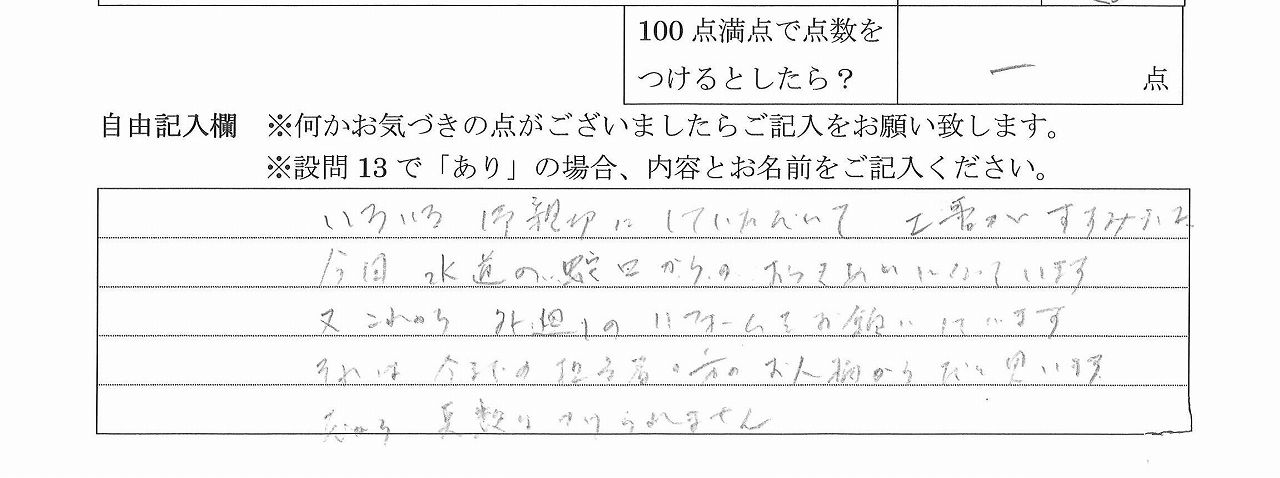 100 点満点で点数を
つけるとしたら？ ー 点
自由記入欄 ※何かお気づきの点がございましたらご記入をお願い致します。
※設問 13 で「あり」の場合、内容とお名前をご記入ください。
いろいろ 御親切に していただいて 工事が すすみました
今回 水道の蛇口からの おつき合いになっています
又 これから 外廻りの リフォームをお願いしています
それは 今までの 担当者の方の お人柄から だと思います
だから 点数は つけられません